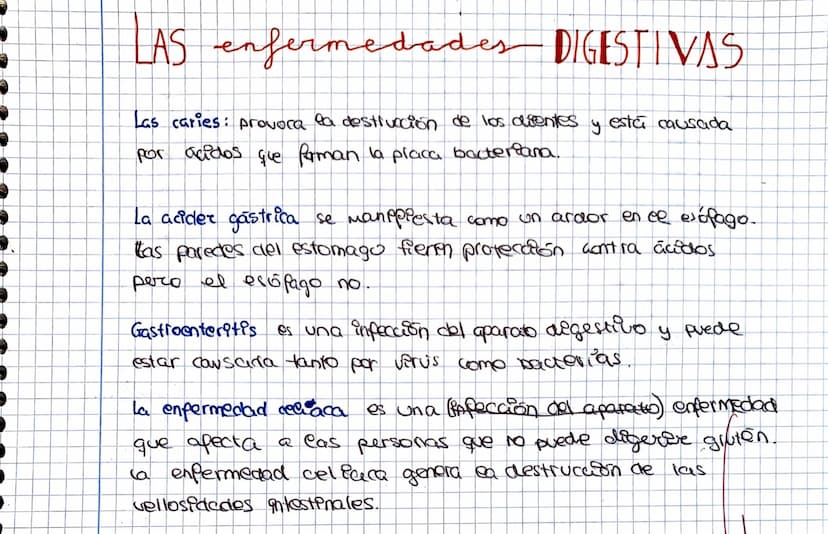 LAS enfermedades DIGESTIVAS
Las caries: provoca la destrucción de los dientes y está causada
por ácidos que forman la placa bacteriana.
La acidez gástrica se manifiesta como un ardor en el esófago.
Las paredes del estomago tienen protección contra ácidos
pero el esófago no.
Gastroenteritis es una infección del aparato digestivo y puede
estar causada tanto por virus como bacterias.
La enfermedad celiaca es una (infección del aparato) enfermedad
que afecta a las personas que no puede digerir glutén.
La enfermedad celiaca genera la destrucción de las
vellosidades intestinales.